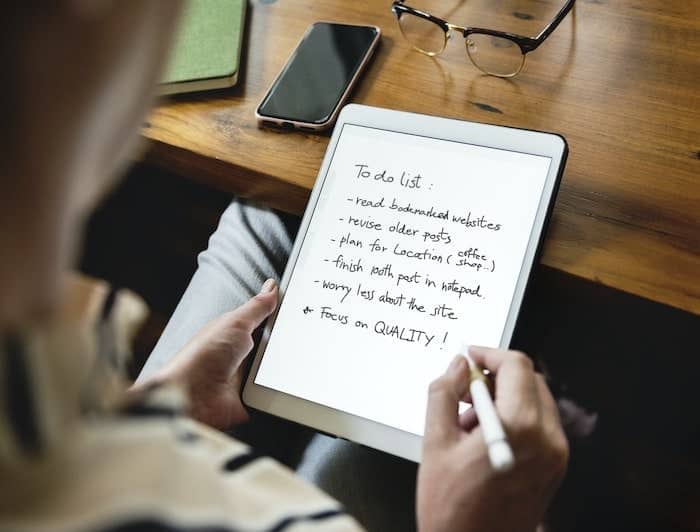 To do list :
- read bookmarked websites
- revise older posts
- plan for Location ( coffee shop..)
- finish 100th post in notepad.
- worry less about the site
* Focus on QUALITY !